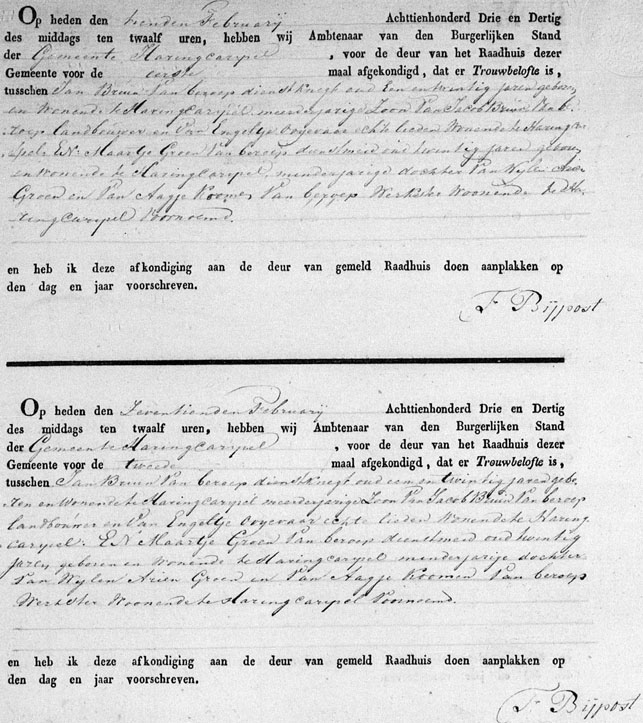 Op heden den tienden Februarij Achttienhonderd Drie en Dertig
des middags ten twaalf uren, hebben wij Ambtenaar van den Burgerlijken Stand
der Gemeente Haringcarspel , voor de deur van het Raadhuis dezer
Gemeente voor de eerste maal afgekondigd, dat er Trouwbelofte is,
tusschen Jan Bruin van beroep dienstknegt oud een en twintig jaren geboren
en Wonende te Haringcarspel, meerderjarige Zoon Van Jacob Bruin Van be
roep landbouwer en Van Engeltje Ooijevaar echte lieden Wonende te Haringca
spel. EN Maartje Groen Van beroep dienstmeid oud twintig jaren geboren
en wonende te Haringcarspel, minderjarige dochter Van Wijlen Arie
Groen en Van Aagje Koomen Van beroep Werkster Woonende te Ha
ringcarspel Voornoemd.
en heb ik deze afkondiging aan de deur van gemeld Raadhuis doen aanplakken op
den dag en jaar voorschreven.
F Bijpost
Op heden den Zeventienden Februarij Achttienhonderd Drie en Dertig
des middags ten twaalf uren, hebben wij Ambtenaar van den Burgerlijken Stand
der Gemeente Haringcarspel , voor de deur van het Raadhuis dezer
Gemeente voor de tweede maal afgekondigd, dat er Trouwbelofte is,
tusschen Jan Bruin Van beroep dienstknegt oud een en twintig jaren gebo
ren en Wonende te Haringcarspel meerderjarige Zoon Van Jacob Bruin Van beroep
landbouwer en Van Engeltje Ooyevaar echte lieden Wonende te Haring
carspel. EN Maartje Groen Van beroep dienstmeid oud twintig
jaren geboren en wonende te Haringcarspel minderjarige dochter
Van Wijlen Arien Groen en Van Aagje Koomen Van beroep
Werkster Woonende te Haringcarspel Voornoemd.
en heb ik deze afkondiging aan de deur van gemeld Raadhuis doen aanplakken op
den dag en jaar voorschreven.
F Bijpost